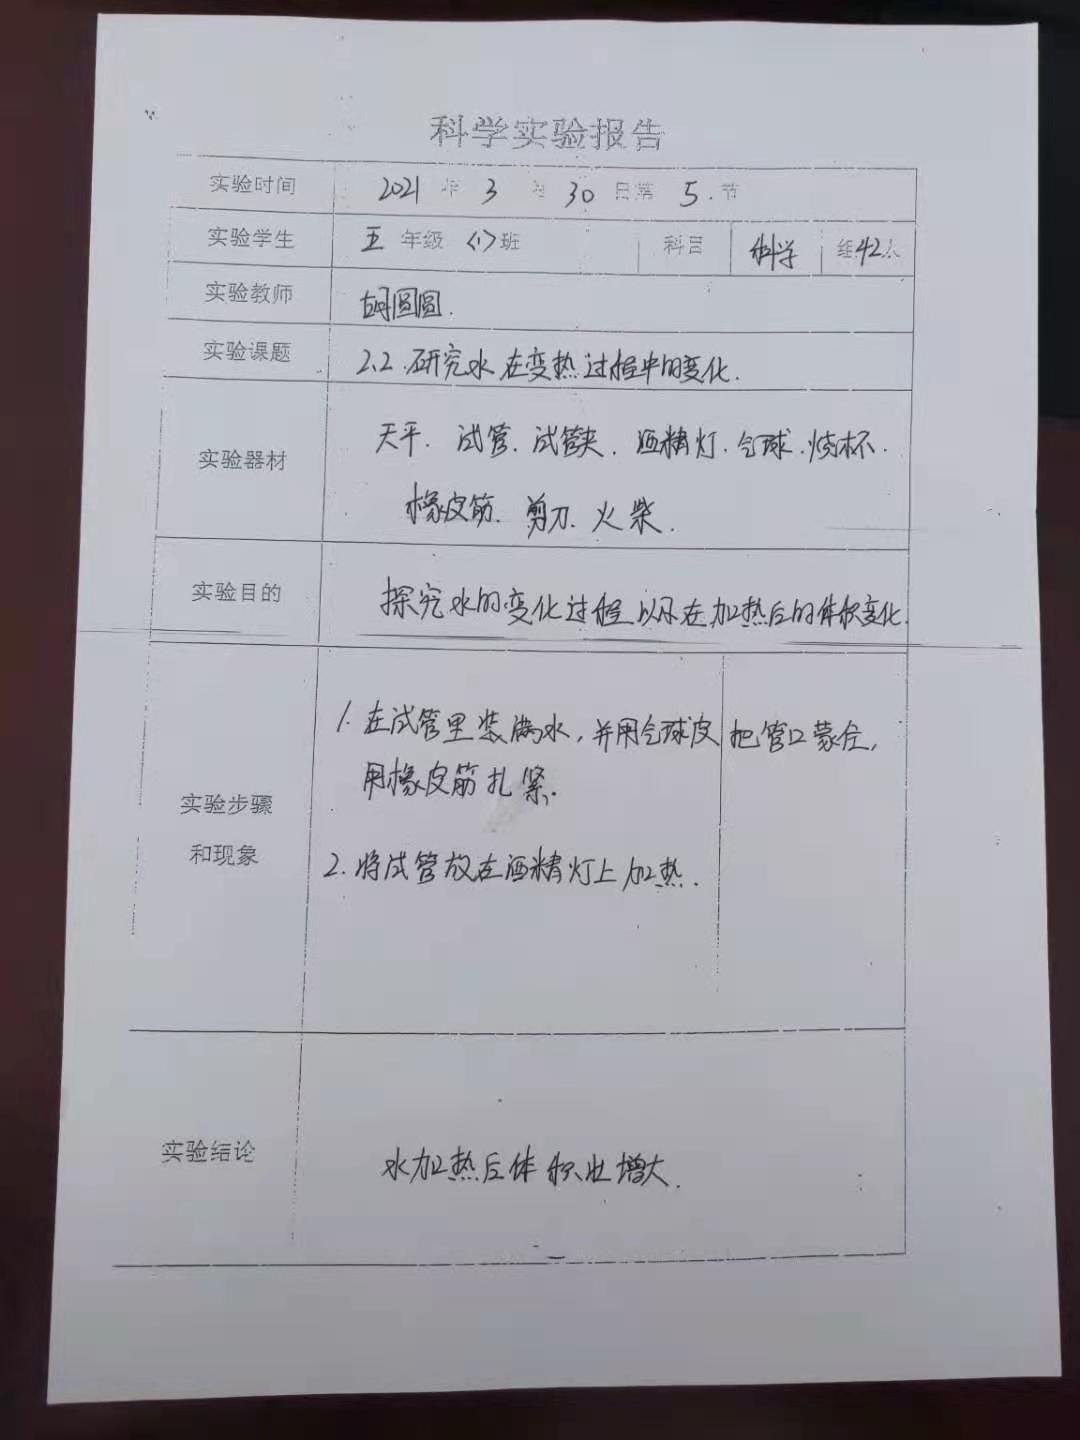 科学实验报告
实验时间 2021年3月30日第5.节
实验学生 五年级〈1〉班 科目 科学 组42人
实验教师 胡圆圆.
实验课题 2.2.研究水在变热过程中的变化.
实验器材 天平.试管.试管夹.酒精灯.气球.烧杯.
橡皮筋.剪刀.火柴.
实验目的 探究水的变化过程以及在加热后的体积变化.
实验步骤
和现象
1.在试管里装满水,并用气球皮把管口蒙住,
用橡皮筋扎紧.
2.将试管放在酒精灯上加热.
实验结论 水加热后体积会增大.